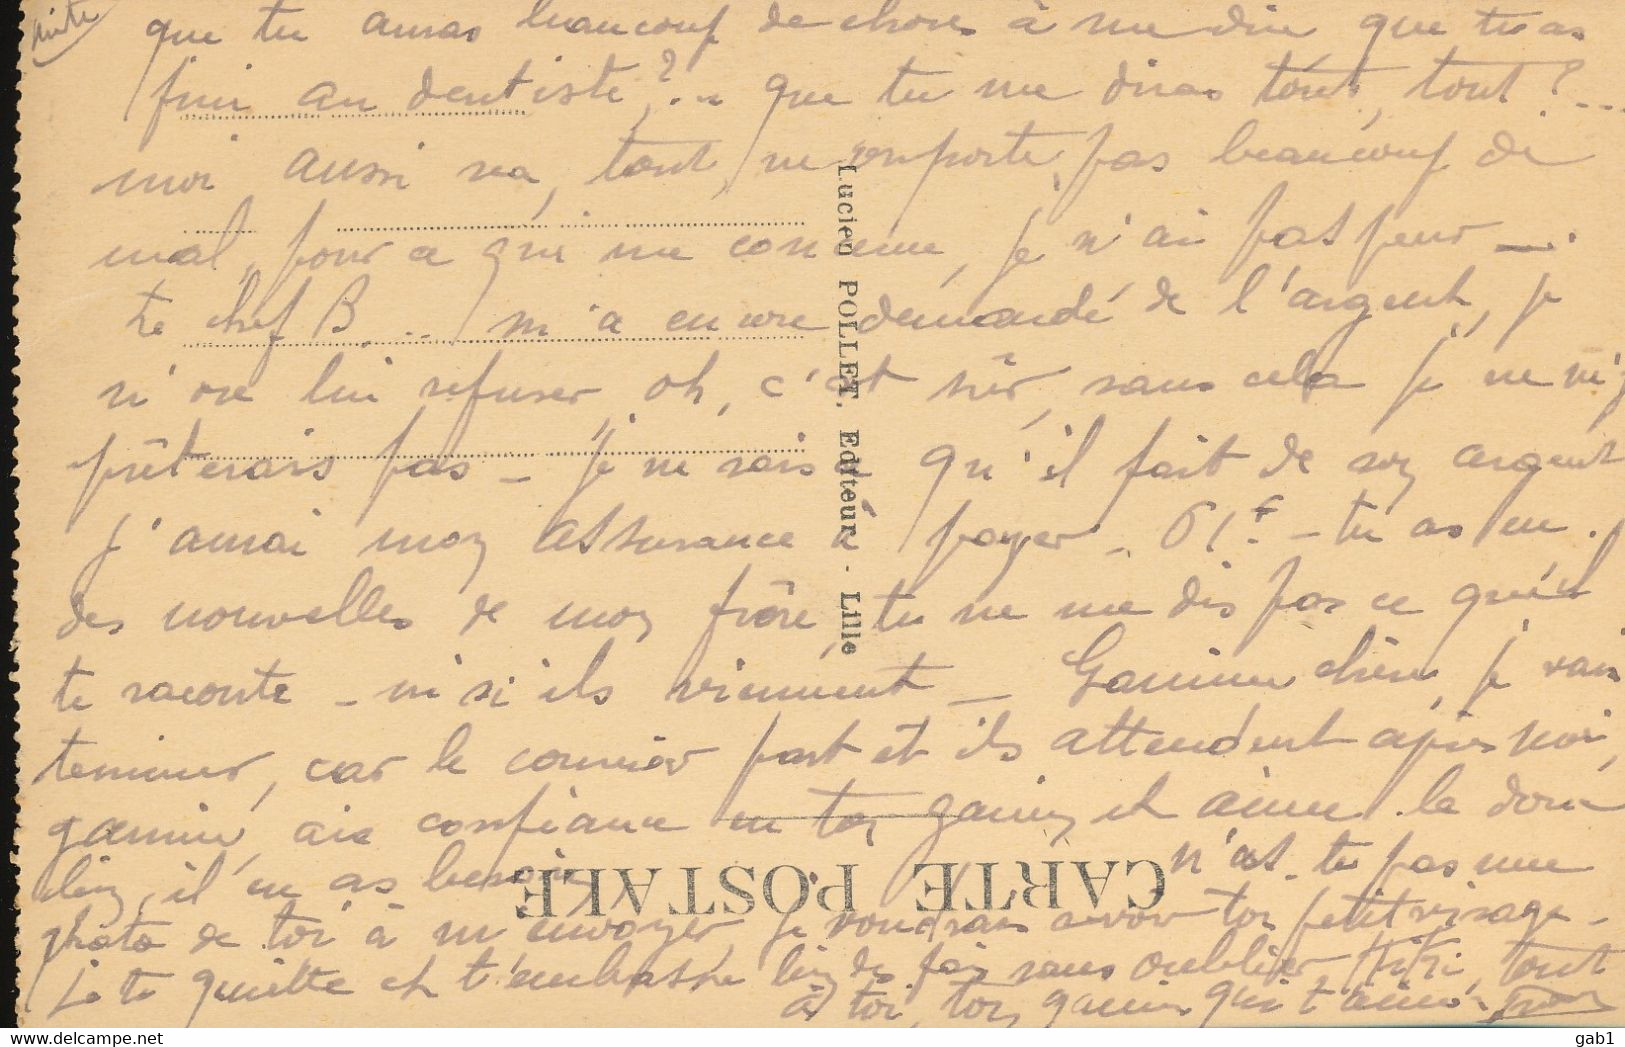 suite
que tu auras beaucoup de choses à me dire, que tu as
fini au dentiste, ?.. que tu me diras tout, tout ? ...
moi aussi va, tout, ne t'emporte pas beaucoup de
mal, pour ce qui me concerne, je n'ai pas peur —.
Le chef B... m'a encore demandé de l'argent, je
n'ose lui refuser, oh, c'est sûr, sans cela je ne m'y
prêterais pas — je ne sais ce qu'il fait de son argent
j'aurai mon assurance à payer — 61f. — tu as eu
des nouvelles de mon frère, tu ne me dis pas ce qu'il
te raconte — ni si ils viennent — Gamine chérie, je vais
terminer, car le courrier part et ils attendent après moi,
gamine, aie confiance en ton gamin et aime-le donc
bien, il en as besoin n'as-tu pas une
photo de toi à m'envoyer, je voudrais revoir ton petit visage —
Je te quitte et t'embrasse bien des fois sans oublier Kiki, tout
à toi, ton gamin qui t'aime
Lucien POLLET, Editeur - Lille
CARTE POSTALE
gab1